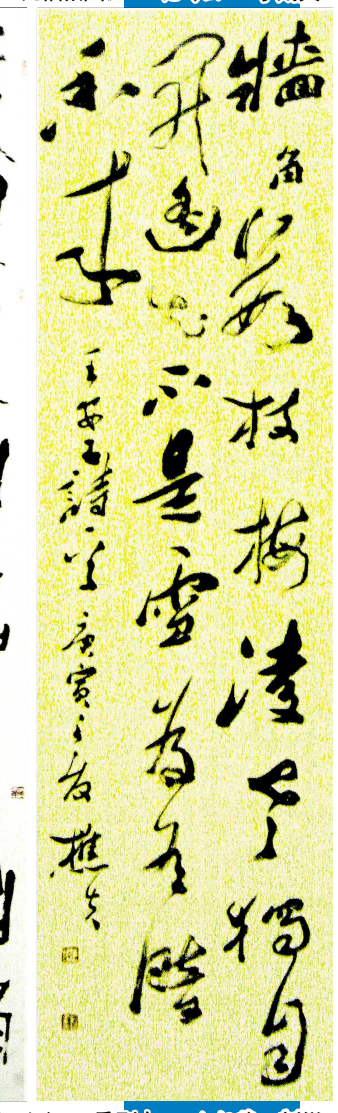 牆角數枝梅凌寒獨自
開遙知不是雪為有暗
香來
王安石詩一首 庚寅之 樵夫